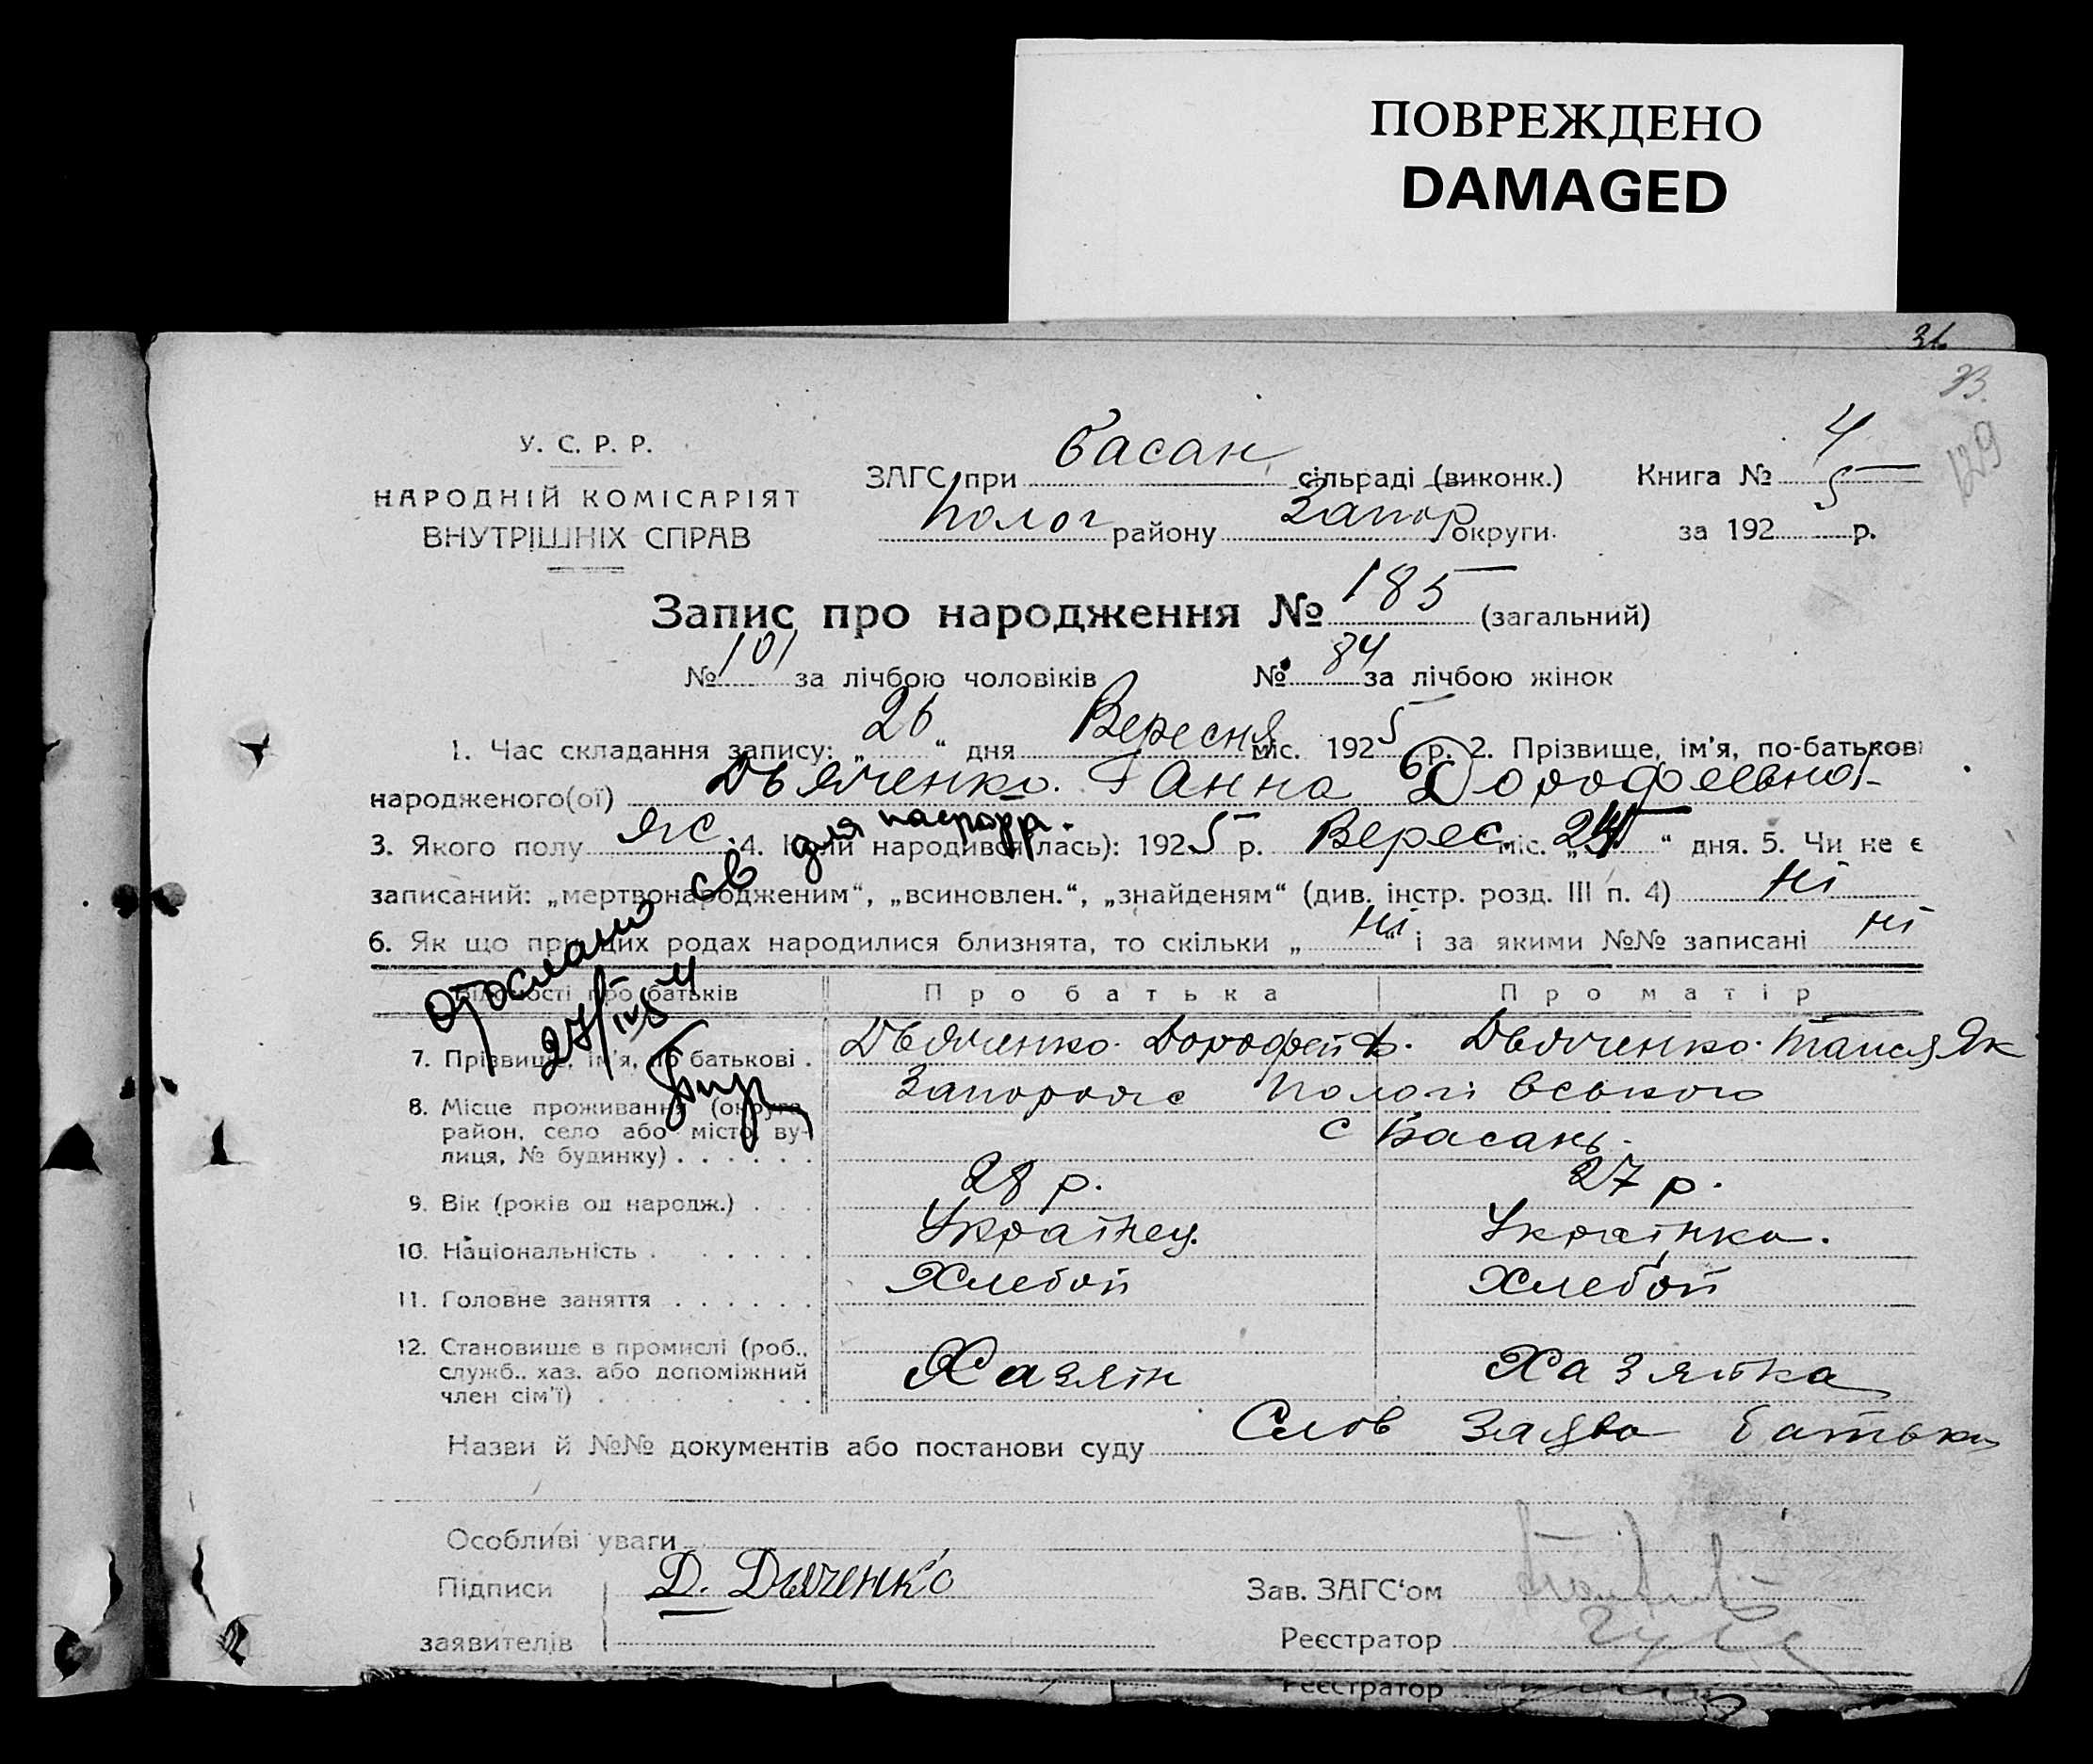 ПОВРЕЖДЕНО
DAMAGED
36
33.
129
У. С. Р. Р.
НАРОДНІЙ КОМІСАРІЯТ
ВНУТРІШНІХ СПРАВ
ЗАГС при басан сільраді (виконк.) Книга № 4
Полог району Запор округи. за 1925 р.
Запис про народження № 185 (загальний)
№ 101 за лічбою чоловіків № 84 за лічбою жінок
1. Час складання запису: „26“ дня Вересня міс. 1925 р. 2. Прізвище, ім’я, по-батькові
народженого(ої) Дьяченко Ганна Дорофеевна
3. Якого полу жс. 4. Коли народився(лась): 1925 р. Верес. міс. „24“ дня. 5. Чи не є
записаний: „мертвонародженим“, „всиновлен.“, „знайденям“ (див. інстр. розд. III п. 4) ні
6. Як що при цих родах народилися близнята, то скільки „ні“ і за якими №№ записані ні
отослано св для
27/IV
Відомості про батьків Про батька Про матір
7. Прізвище, ім’я, по батькові . Дьяченко Дорофей Ф. Дьяченко Таися Як
8. Місце проживання (округа, район, село або місто, вулиця, № будинку) . . . . . . Запорож Пологівського
с Басань.
9. Вік (років од народж.) . . . 28 р. 27 р.
10. Національність . . . . . . . Українец. Українка.
11. Головне заняття . . . . . . Хлебоп Хлебоп
12. Становище в промислі (роб., служб., хаз. або допоміжний член сім’ї) . . . . . . Хазяін Хазяйка
Назви й №№ документів або постанови суду Слов Заява батька
Особливі уваги
Підписи Д. Дьяченко Зав. ЗАГС‘ом
заявителів Реєстратор
Реєстратор